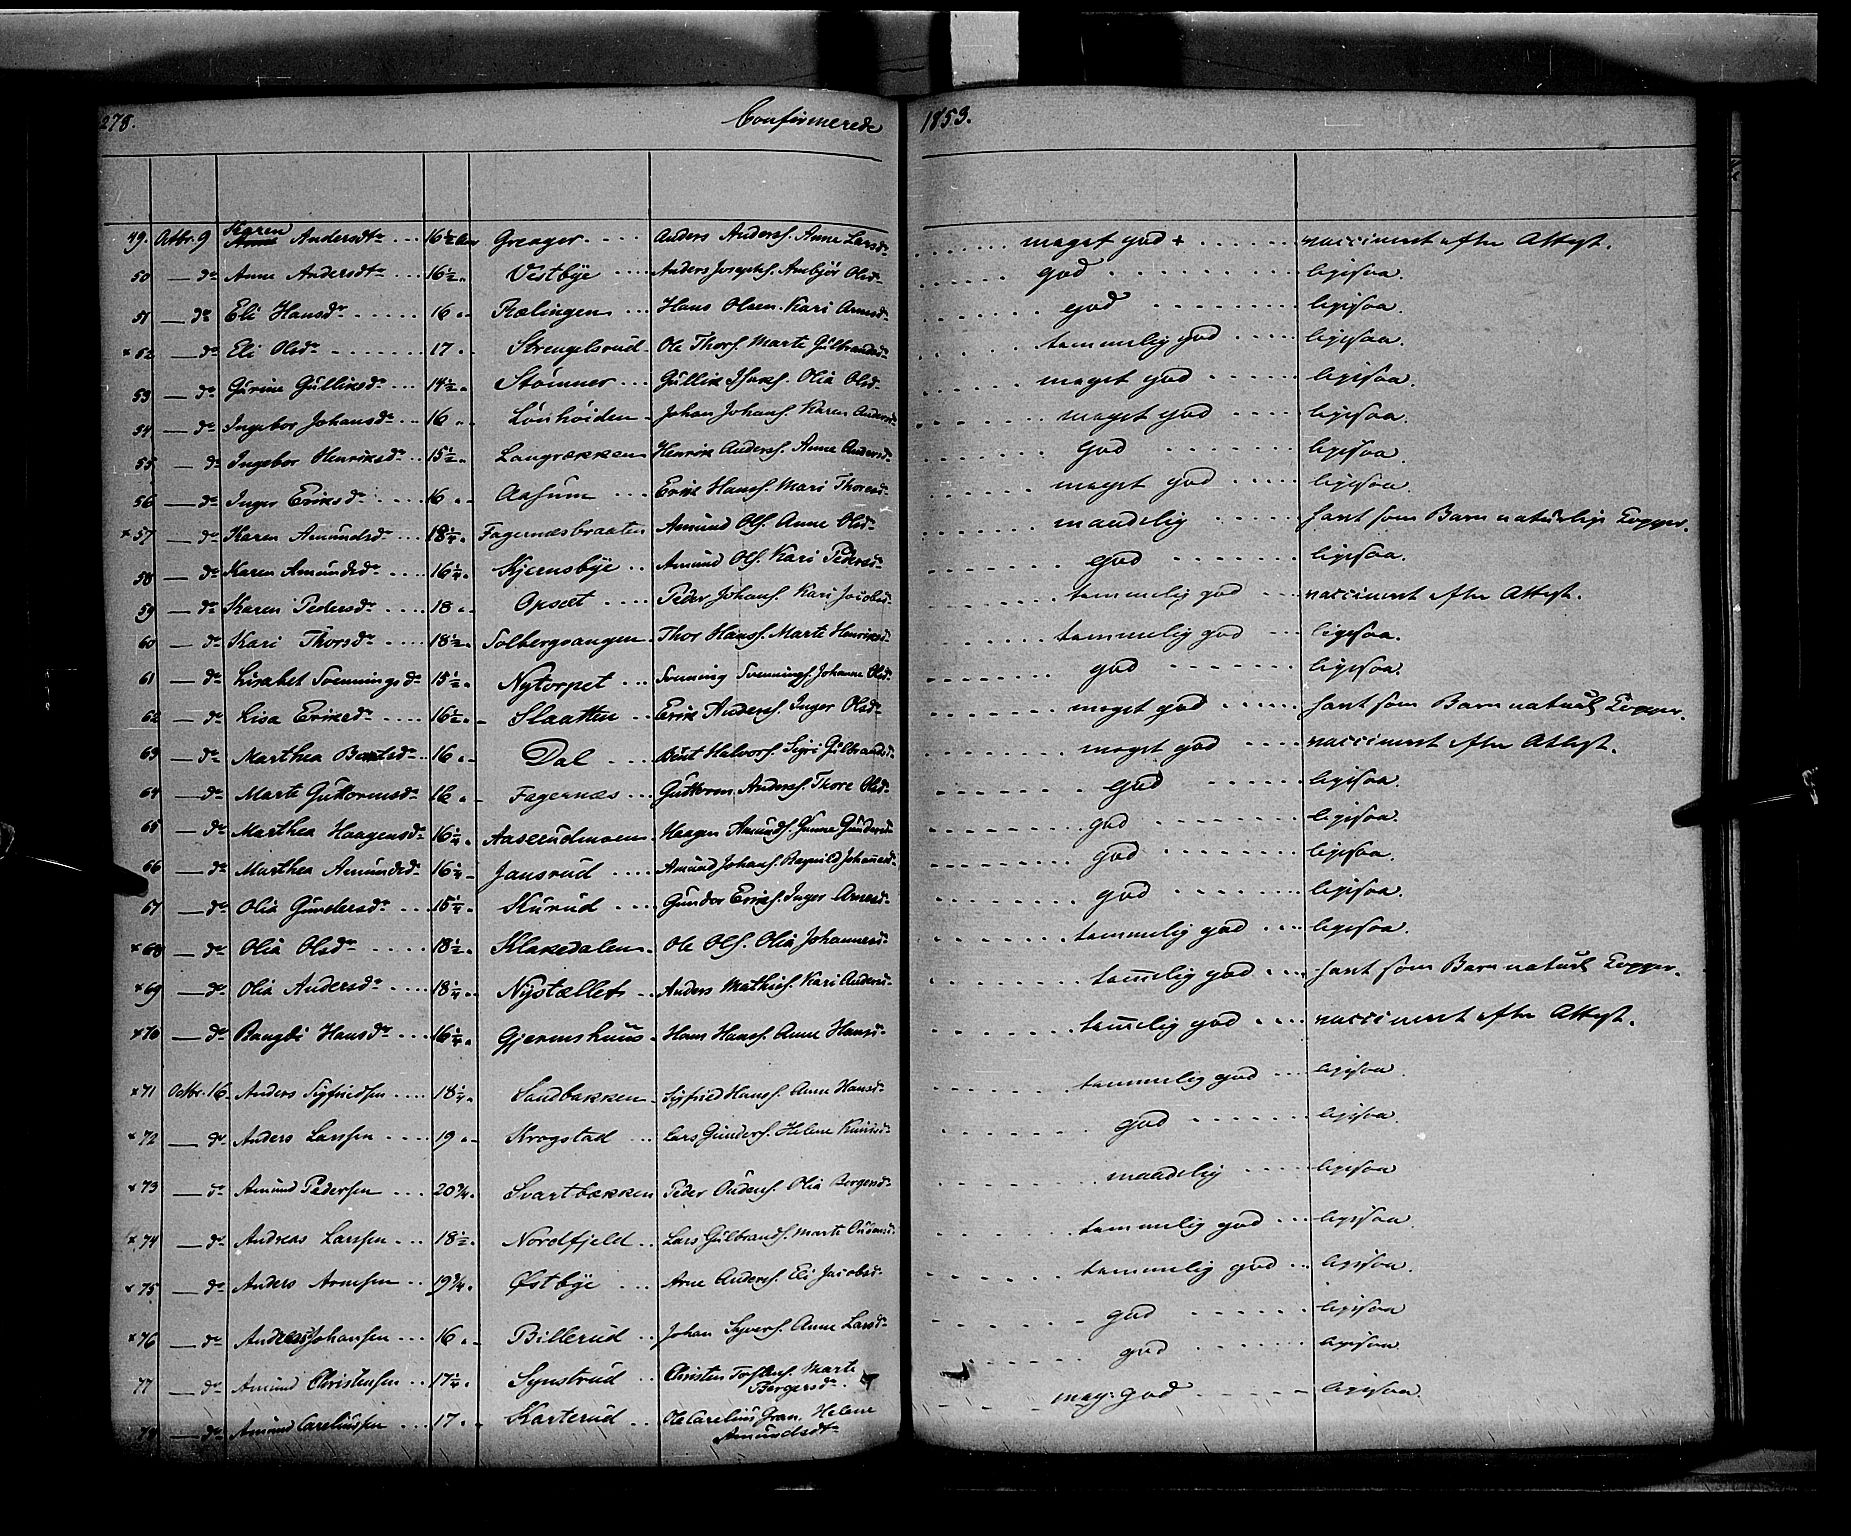 278. Confirmerede 1853.
49. Octbr. 9 Karen Andersdtr 16½ Aar Greager Anders Anders. Anne Larsdr maget god + vaccineret efter Attest.
50 — do Anne Andersdtr 16½ Vestbye Anders Josephs. Anbjør Olsdr god ligesaa.
51 — do Eli Hansdr 16 Rælingen Hans Olsen. Kari Arnesdr god ligesaa.
× 52 — do Eli Olsdr 17 Strengelsrud Ole Thors. Marte Gulbrandsdr temmelig god ligesaa.
53 — do Gurine Gulliksdr 14½ Stømner Gullik Isaks. Olia Olsdr maget god ligesaa.
54 — do Ingebor Johansdr 16 Lønhøiden Johan Johans. Karen Andersdr maget god ligesaa.
55 — do Ingebor Henriksdr 15½ Langrækken Henrik Anders. Anne Andersdr God ligesaa.
56 — do Inger Eriksdr 16 Aasum Erik Hans. Mari Thoresdr maget god ligesaa.
× 57 — do Karen Amundsdr 18¼ Fagernæsbraaten Amund Ols. Anne Olsdr maadelig havt som Barn naturlige Kopper.
58 — do Karen Amundsdr 16¼ Kjernsbye Amund Ols. Kari Pedersdr god ligesaa.
59 — do Karen Pedersdr 18 Opsæt Peder Johans. Kari Jacobsdr temmelig god vaccineret efter Attest.
60 — do Kari Thorsdr 18½ Solbergsangen Thor Hans. Marte Henriksdr temmelig god ligesaa.
61 — do Lisabet Svenningsdr 15½ Nytorpet Svenning Svennings. Johanne Olsdr god ligesaa.
62 — do Lisa Eriksdr 16½ Slaatten Erik Anders. Inger Olsdr maget god havt som Barn naturl Kopper.
63 — do Marthea Berntsdr 16 Dal Bernt Halvors. Sigri Gulbrandsdr maget god vaccineret efter Attest.
64 — do Marte Guttormsdr 16 Fagernæs Guttorm Anders. Thore Olsdr god ligesaa.
65 — do Marthea Haagensdr 16¼ Aaserudmoen Haagen Amunds. Gunne Gundersdr god ligesaa.
66 — do Marthea Amundsdr 16¼ Jansrud Amund Johans. Ragnild Johannesdr god ligesaa.
67 — do Olia Gundersdr 15¼ Kurud Gunder Eriks. Inger Arnesdr god ligesaa.
× 68 — do Olia Olsdr 18½ Klakedalen Ole Ols. Olia Johannesdr temmelig god ligesaa.
× 69 — do Olia Andersdr 18¼ Nystællet Anders Mathis. Kari Andersdr temelig god havt som Barn naturl Kopper.
× 70 — do Rangdi Hansdr 16¼ Gjermshuus Hans Hans. Anne Hansdr temelig god vaccineret efter Attest.
× 71 Octbr. 16 Anders Sigfridsen 18¼ Sandbakken Sigfrid Hans. Anne Hansdr temmelig god ligesaa
× 72 — do Anders Larssen 19 Krogstad Lars Gunders. Helene Knudsdr god ligesaa
× 73 — do Amund Pedersen 20¾ Svartbækken Peder Oudens. Olia Borgersdr maadelig ligesaa
× 74 — do Andreas Larssen 18½ Nordfjeld Lars Gulbrands. Marte Oudensdr temmelig god ligesaa
× 75 — do Anders Arnesen 19¾ Østbye Arne Anders. Eli Jacobsdr temmelig god ligesaa.
× 76 — do Andreas Johansen 16 Billerud Johan Syvers. Anne Larsdr god ligesaa
77 — do Amund Christensen 17¼ Synstrud Christen Torstens. Marte Borgersdr. god ligesaa
78 — do Amund Careliussen 17 Karterud Ole Carelius Gran. Helene Amundsdtr meg. god ligesaa